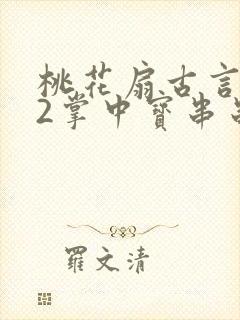 桃花扇古言
2掌中寳串
羅文清